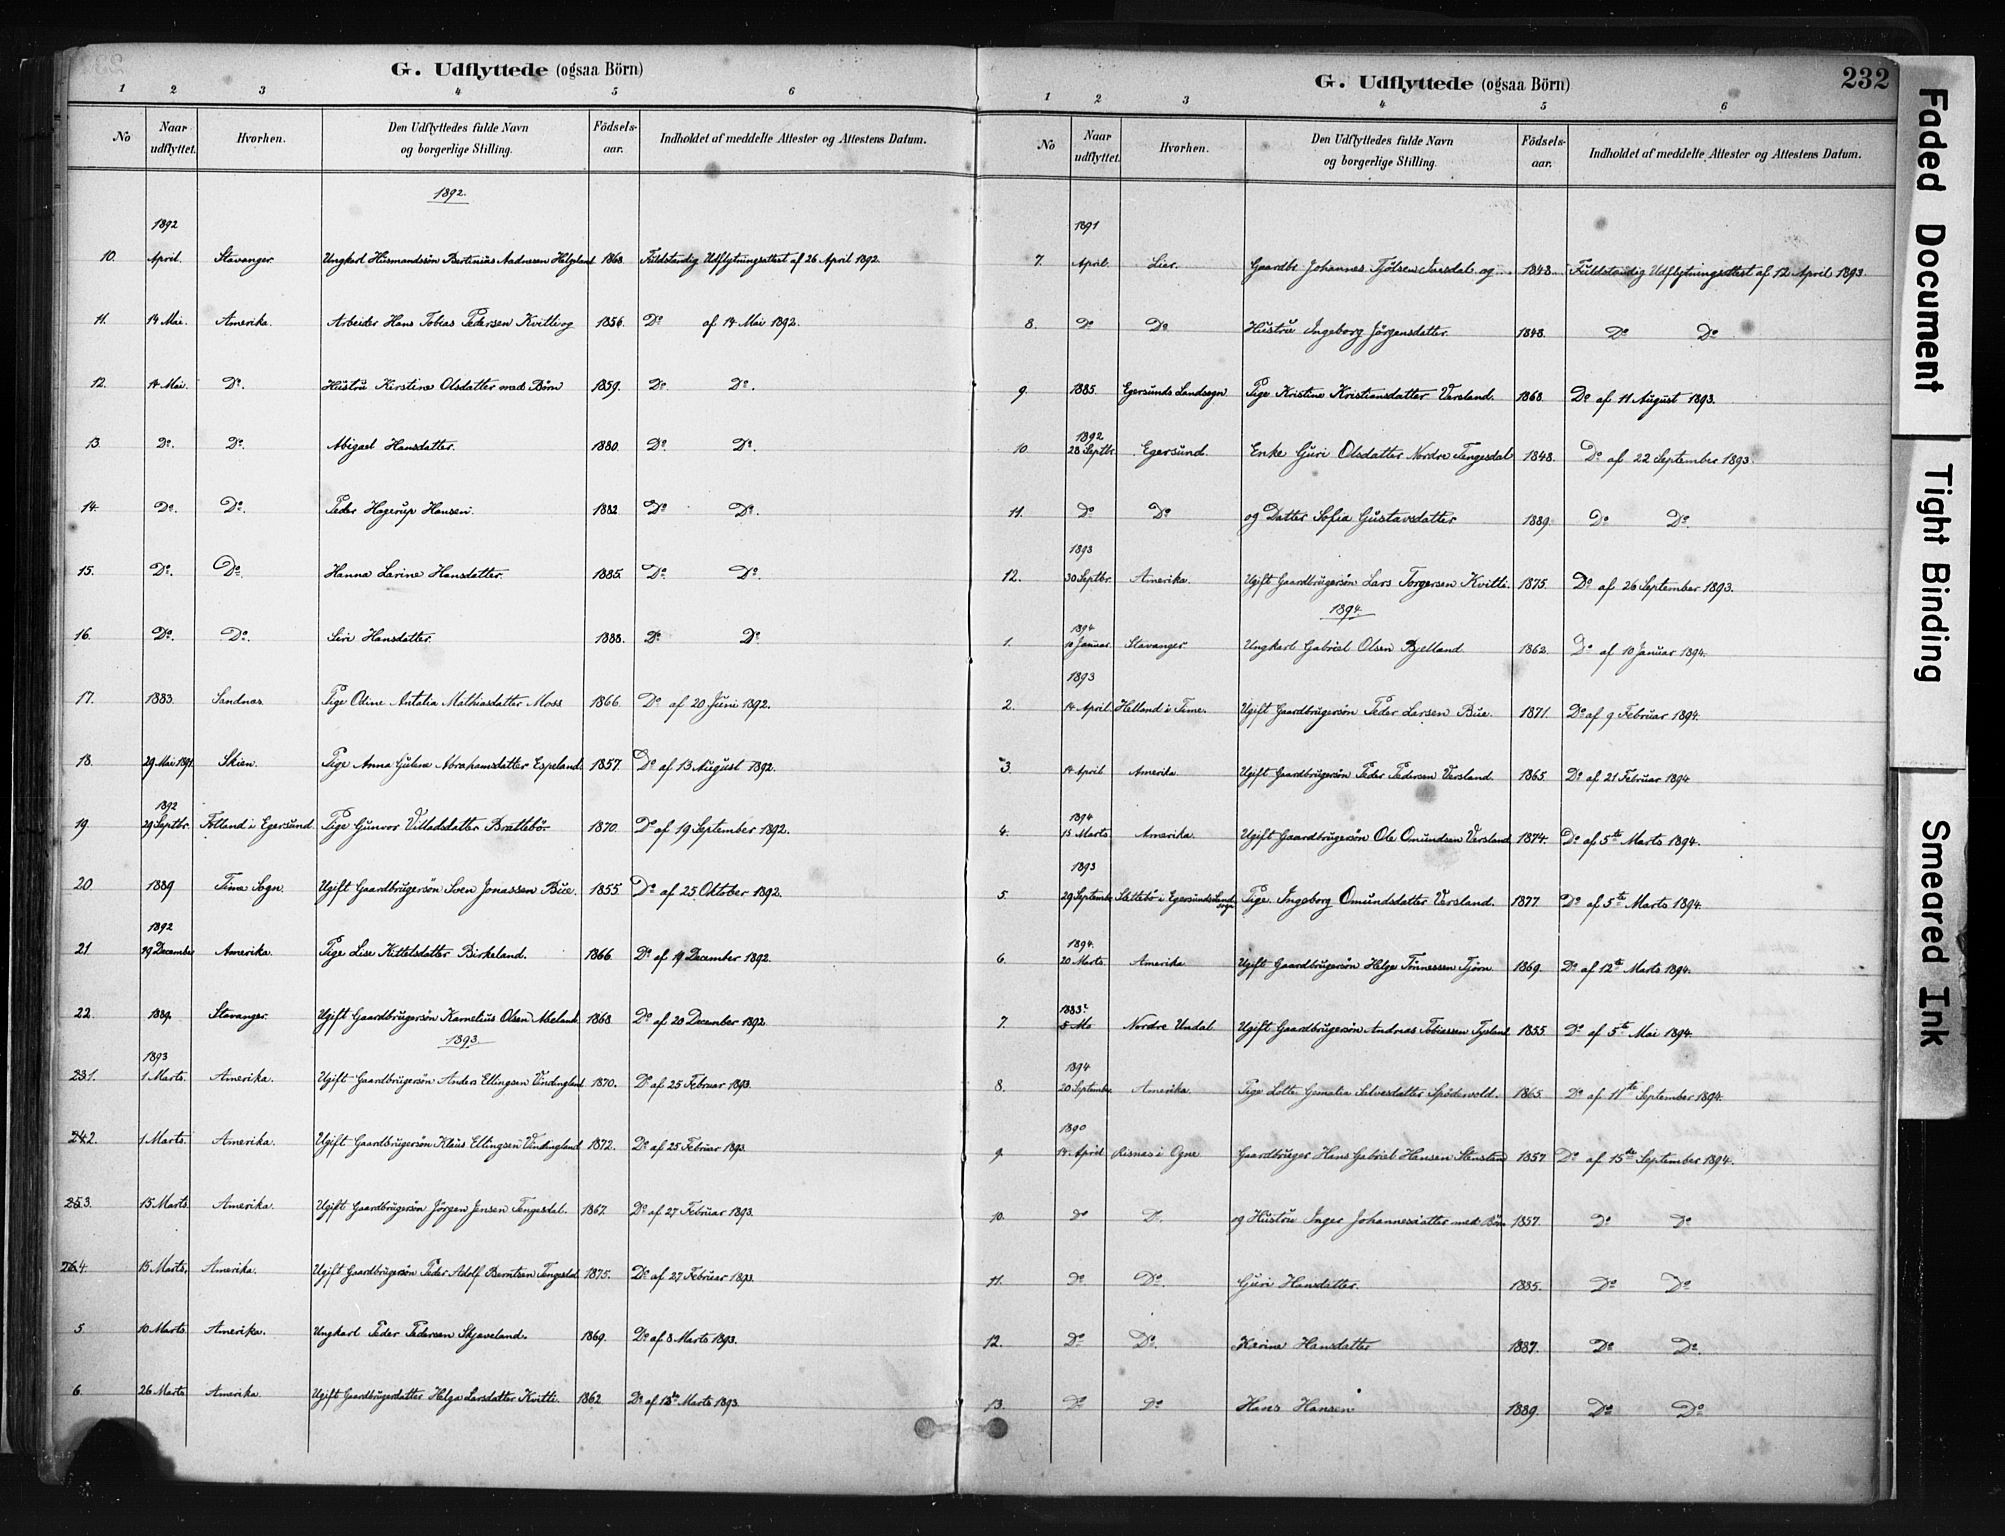 G. Udflyttede (ogsaa Börn)
1 2 3 4 5 6
No Naar udflyttet. Hvorhen. Den Udflyttedes fulde Navn og borgerlige Stilling. Födsels-aar. Indholdet af meddelte Attester og Attestens Datum.
1892.
1892
10. April. Stavanger Ungkarl Husmandssøn Bertinius Aadnesen Helgland 1868. Fuldstændig Udflytningsattest af 26 April 1892.
11. 14 Mai. Amerika. Arbeider Hans Tobias Pedersen Kvitle og 1856. Do af 14 Mai 1892.
12. 14 Mai. Do. Hustru Kirstine Olsdatter med Børn 1859. Do. Do.
13. Do. Do. Abigael Hansdatter. 1880. Do. Do.
14. Do. Do. Peder Hagerup Hansen. 1882 Do Do.
15. Do. Do. Hanna Larine Hansdatter. 1885. Do. Do.
16. Do. Do. Siri Hansdatter. 1888. Do Do
17. 1883. Sandnæs. Pige Odine Antalia Mathiasdatter Moss 1866. Do af 20 Juni 1892.
18. 29 Mai 1891. Skien. Pige Anna Guline Abrahamsdatter Espeland. 1857. Do af 13 August 1892.
1892
19. 29 Septbr. Fotland i Egersund. Pige Gunvor Villadsdatter Brattebør 1870. Do af 19 September 1892.
20 1889 Time Sogn. Ugift Gaardbrugersøn Sven Jonassen Bue. 1855 Do af 25 Oktober 1892.
1892
21 29 December Amerika. Pige Lise Kittelsdatter Birkeland. 1866. Do af 19 December 1892.
22. 1889. Stavanger. Ugift Gaardbrugersøn Kornelius Olsen Mæland 1868 Do af 20 December 1892
1893.
1893
231. 1 Marts. Amerika. Ugift Gaardbrugersøn Anders Ellingsen Vindingland 1870. Do af 25 Februar 1893.
242. 1 Marts. Amerika. Ugift Gaardbrugersøn Klaus Ellingsen Vindingland 1872. Do af 25 Februar 1893.
253. 15 Marts. Amerika. Ugift Gaardbrugersøn Jørgen Jensen Tengesdal. 1867. Do af 27 Februar 1893.
264. 15 Marts. Amerika. Ugift Gaardbrugersøn Peder Adolf Berntsen Tengesdal 1875. Do af 27 Februar 1893.
5 10 Marts Amerika. Ungkarl Peder Pedersen Skjæveland. 1869. Do af 8 Marts 1893.
6. 26 Marts Amerika Ugift Gaardbrugerdatter Helga Larsdatter Kvitle. 1862 Do af Marts 1893.
G. Udflyttede (ogsaa Börn) 232
1 2 3 4 5 6
No Naar udflyttet. Hvorhen. Den Udflyttedes fulde Navn og borgerlige Stilling. Födsels-aar. Indholdet af meddelte Attester og Attestens Datum.
1891
7. April. Lier. Gaardbr Johannes Tjølsen og 1848. Fuldstændig Udflytningsattest af 12 April 1893.
8. Do Do Hustru Ingeborg Jørgensdatter. 1848. Do Do
9. 1885. Egersunds Landsogn Pige Kristine Kristiansdatter Versland. 1868. Do af 11 August 1893.
1892
10. 28 Septbr. Egersund. Enke Guri Olsdatter Nordre Tengesdal 1848. Do af 22 September 1893.
11. Do Do og Datter Sofia Gustavsdatter 1889. Do Do.
1893
12. 30 Septbr. Amerika. Ugift Gaardbrugersøn Lars Torgersen Kvitle. 1875. Do af 26 September 1893.
1894.
1894
1. 10 Januar. Stavanger. Ungkarl Gabriel Olsen Bjelland 1862. Do af 10 Januar 1894.
1893
2. 14 April. Helland i Time. Ugift Gaardbrugersøn Peder Larsen Bue. 1871. Do af 9 Februar 1894.
3. 14 April Amerika Ugift Gaardbrugersøn Peder Pedersen Versland. 1865. Do af 21 Februar 1894
1894
4. 15 Marts. Amerika. Ugift Gaardbrugersøn Ole Omundsen Versland 1874. Do af 5te Marts 1894.
1893
5. 29 Septembr. Slettebø i Egersunds Landsogn Pige Ingeborg Omundsdatter Versland. 1877. Do af 5te Marts 1894.
1894.
6. 20 Marts. Amerika Ugift Gaardbrugersøn Helge Tønnessen Tjørn 1869. Do af 12te Marts 1894.
1883
7. Nordre Undal Ugift Gaardbrugersøn Andreas Tobiassen Tysland 1855. Do af 5te Mai 1894.
1894
8. 20 September. Amerika. Pige Lotte Gemalia Salvesdatter Spødervold. 1865. Do af 11te September 1894.
1890
9. 14 April Risnæs i Ogne Gaardbruger Hans Gabriel Hansen Stensland 1857 Do af 15de September 1894.
10. Do D. og Hustru Inger Johannesdatter med Børn 1857. Do Do
11. Do Do. Guri Hansdatter. 1885. Do Do
12. Do Do. Karine Hansdatter 1887. Do Do.
13. Do Do Hans Hansen 1889. Do Do
Faded Document
Tight Binding
Smeared Ink